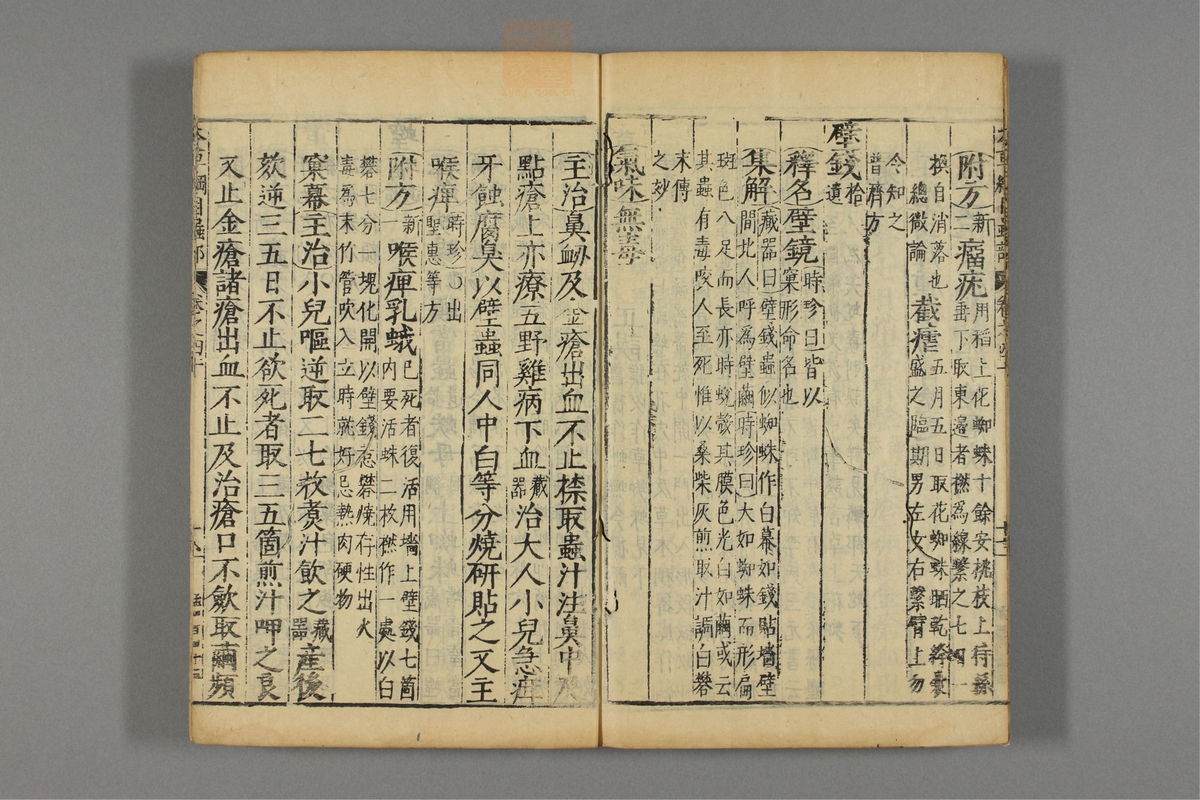 附方新二瘤疣用稻上花蜘蛛十餘安桃枝上待絲
垂下取東邊者撚為線繫之七日一
換自消落也
總微論截瘧五月五日取花蜘蛛晒乾絳囊
盛之臨期男左女右繫臂上勿
令知之
普濟方
壁錢拾遺
釋名壁鏡時珍曰皆以
窠形命名也
集解藏器曰壁錢蟲似蜘蛛作白幕如錢貼墻壁
間北人呼為壁繭時珍曰大如蜘蛛而形扁
斑色八足而長亦時蛻殼其膜色光白如繭或云
其蟲有毒咬人至死惟以桑柴灰煎取汁調白礬
末傅
之妙
氣味無毒
主治鼻衄及金瘡出血不止捺取蟲汁注鼻中及
點瘡上亦療五野雞病下血藏器治大人小兒急疳
牙蝕腐臭以壁蟲同人中白等分燒研貼之又主
喉痺時珍○出
聖惠等方
附方新一喉痺乳蛾已死者復活用墻上壁錢七箇
內要活蛛二枚撚作一處以白
礬七分一塊化開以壁錢惹礬燒存性出火
毒為末竹管吹入立時就好忌熱肉硬物
窠幕主治小兒嘔逆取二七枚煑汁飲之藏器產後
欬逆三五日不止欲死者取三五箇煎汁呷之良
又止金瘡諸瘡出血不止及治瘡口不斂取繭頻